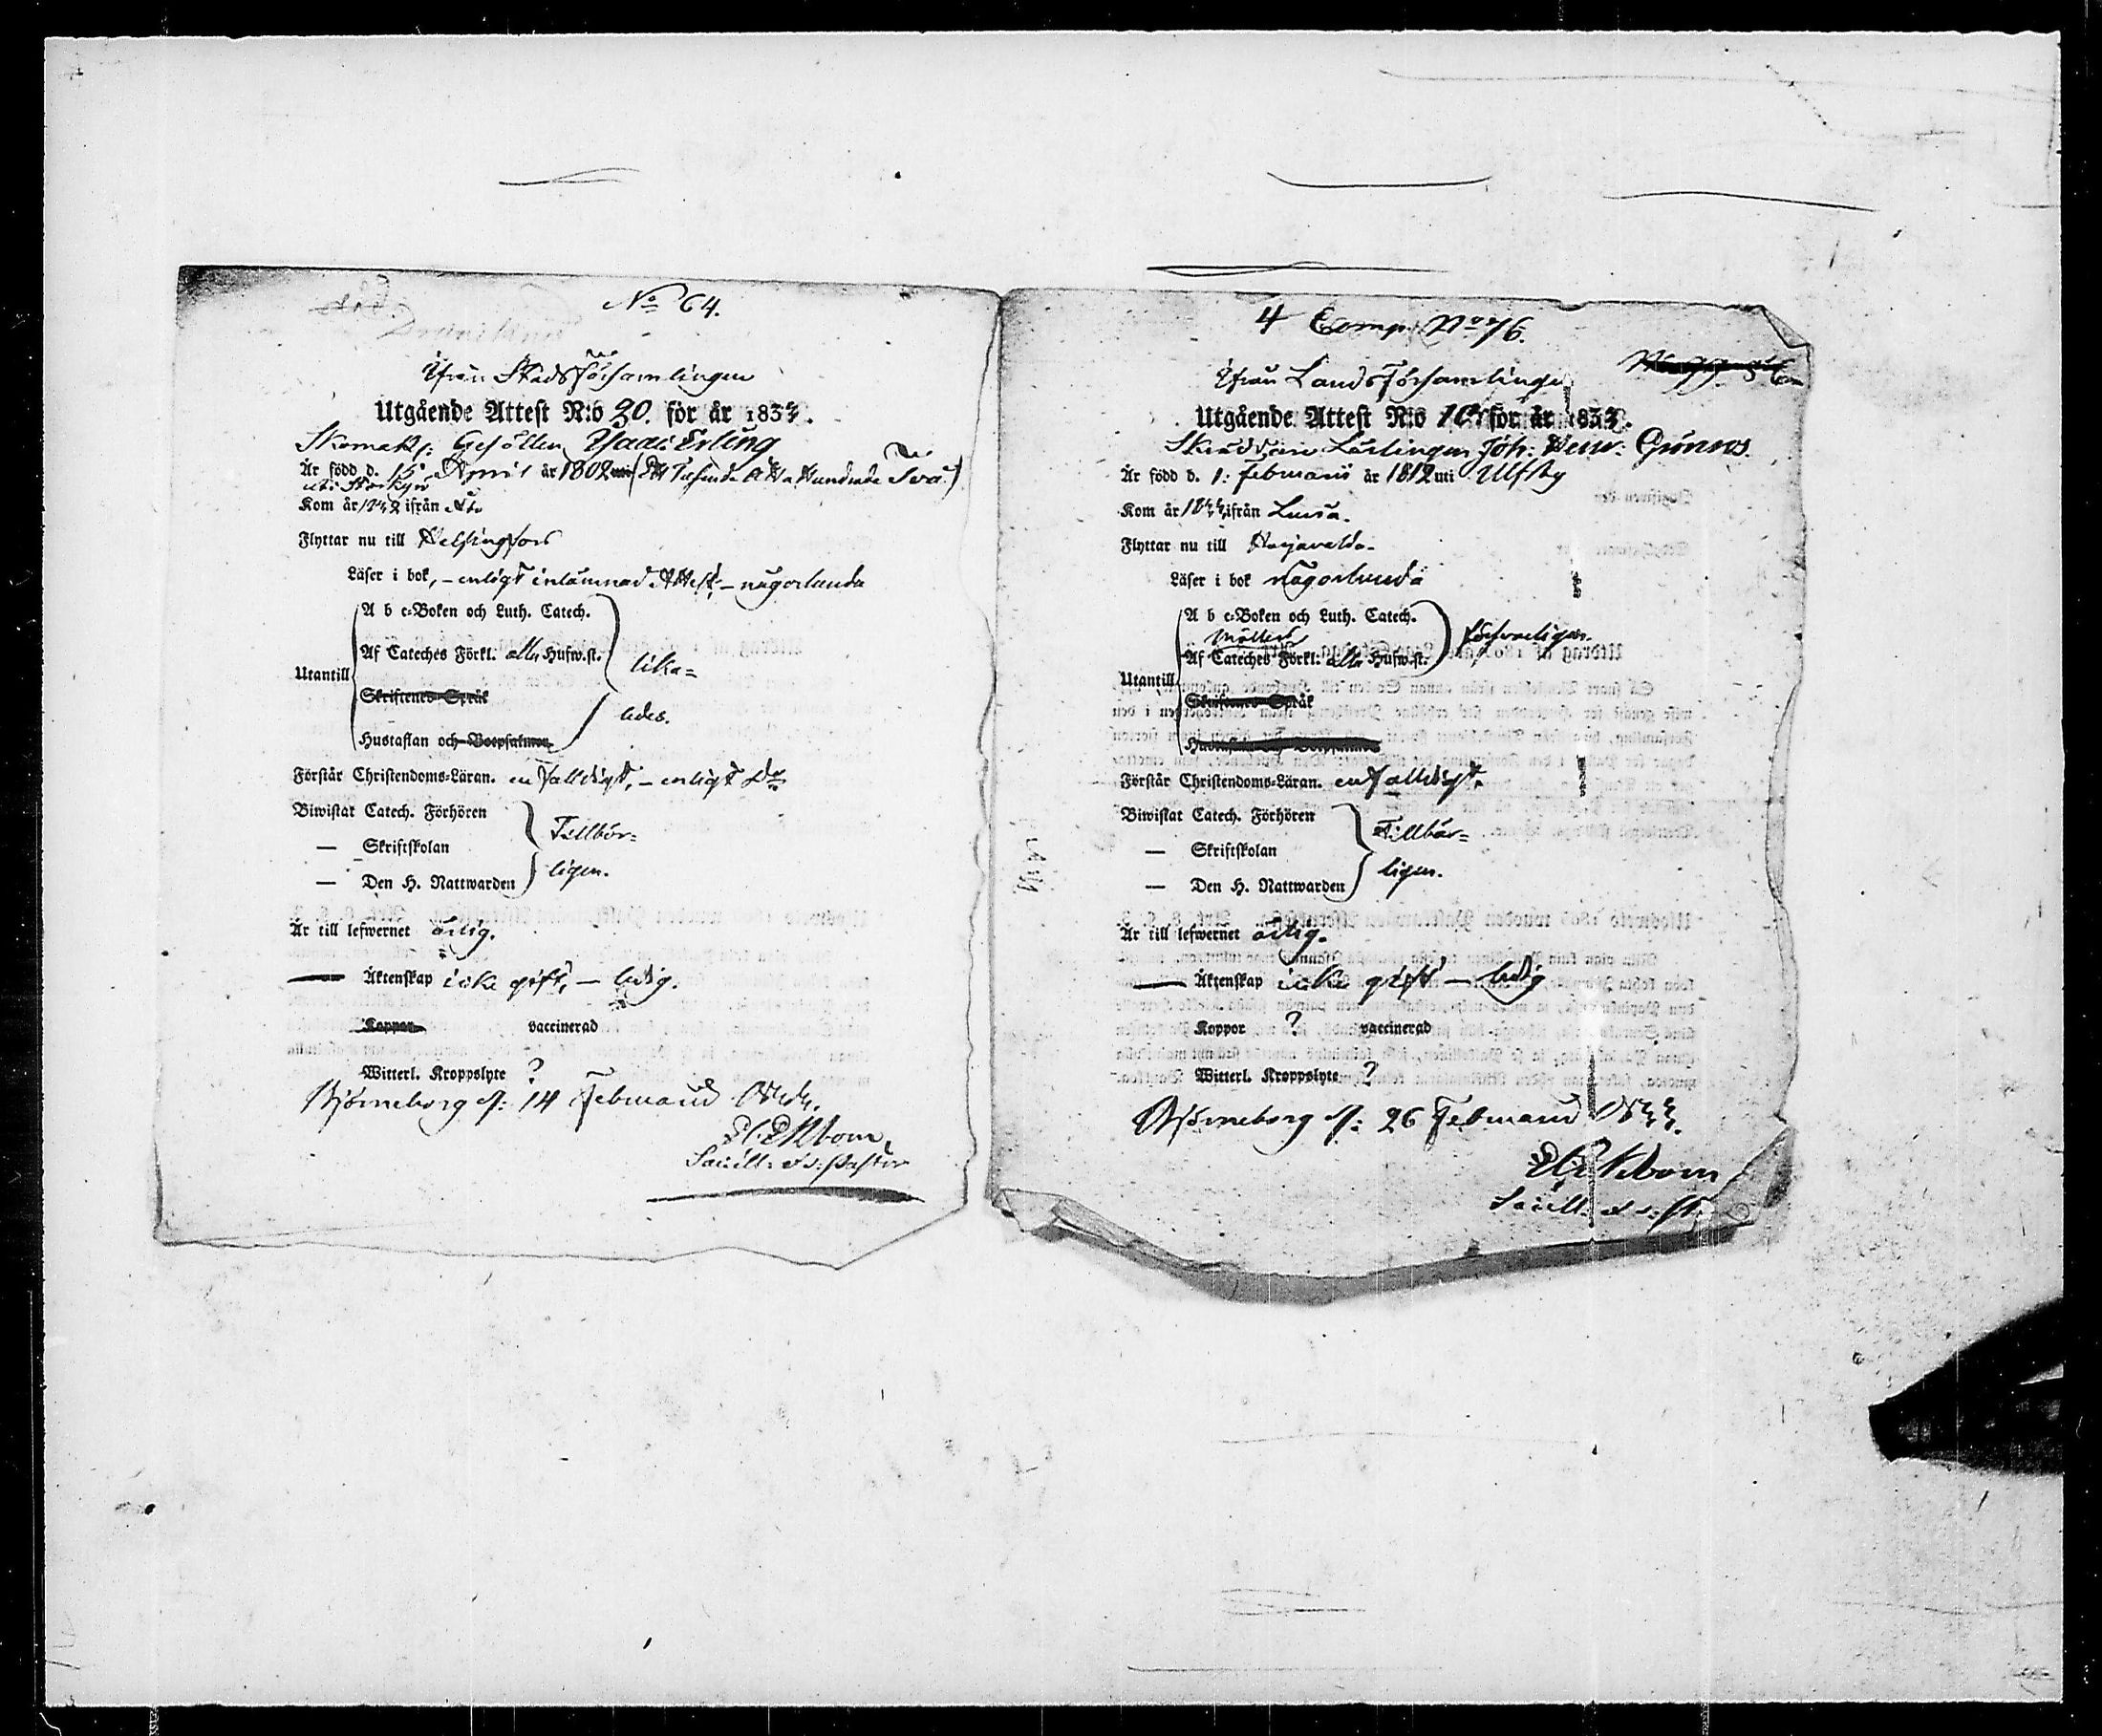 No 64.
Ifrån Stadsförsamlingen
Utgående Attest N:o 30. för år 1834.
Skomak: Gesällen Isaac Erling
Är född d. 15 April år 1802 uti (Ett Tusende Åtta Hundrade Två)
uti Storkyro
Kom år ifrån
Flyttar nu till Helsingfors
Läser i bok, - enligt inlämnad Attest, - någorlunda
A b c-Boken och Luth. Catech.
Af Cateches Förkl: alla Hufw.st. lika=
Utantill
Skriftenes Språk
ledes.
Hustaflan och Botpsalmen
Förstår Christendoms-Läran. enfalldigt, - enligt Do
Biwistat Catech. Förhören
Tillbör=
— Skriftskolan
ligen.
— Den H. Nattwarden
Är till lefwernet ärlig.
— Äktenskap icke gift, - ledig.
Koppor vaccinerad
Witterl. Kroppslyte ?
Björneborg d: 14 Februarii 1834.
Ekbom,
Sacell: v: Pastor
4 Comp. No 76.
Ifrån Landsförsamlingen
Utgående Attest N:o 10 för år 183
Skräddare Lärlingen Joh: Henr: Grönros.
Är född d. 1: Februarii år 1812 uti Ulfsby
Kom år ifrån Luvia.
Flyttar nu till Harjavalda.
Läser i bok någorlunda
A b c-Boken och Luth. Catech.
Möllers försvarligen.
Af Cateches Förkl: alla Hufw.st.
Utantill
Skriftenes Språk
Hustaflan och Botpsalmen
Förstår Christendoms-Läran. enfalldigt.
Biwistat Catech. Förhören
Tillbör=
— Skriftskolan
ligen.
— Den H. Nattwarden
Är till lefwernet ärlig.
— Äktenskap icke gift - ledig
Koppor ? vaccinerad
Witterl. Kroppslyte ?
Björneborg d: 26 Februarii
Ekbom
Sacell: v: